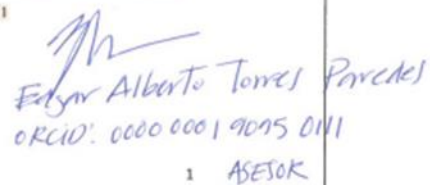 1
Edgar Alberto Torres Paredes
ORCID: 0000 0001 9095 0111
1 ASESOR